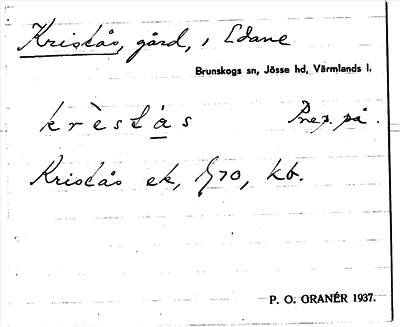 Kristås, gård, i Edane
Brunskogs sn, Jösse hd, Värmlands l.
krèstås Prep. på.
Kristås ek, 1/70, kb.
P. O. GRANÉR 1937.